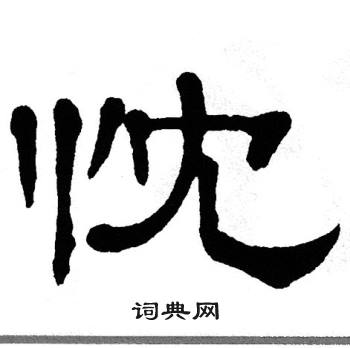 忱
词典网